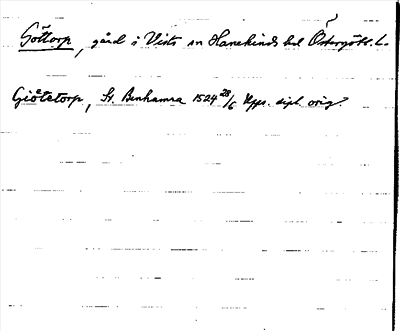 Göttorp, gård i Vists sn Hanekinds hd Östergötl. l.
Giötetorp, St. Benhamra 1524 28/6 Upps. dipl. orig.